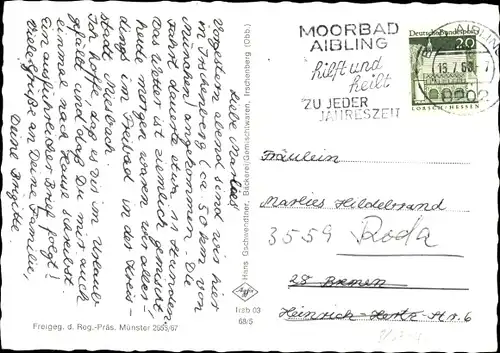 Liebe Marlies!
Vorgestern abend sind wir hier
in Irschenberg (ca 50 km von
München) angekommen. Die
Fahrt dauerte etwa 11 Stunden.
Das Wetter ist ziemlich gemischt,
heute morgen waren wir aber
dings im Freibad in der Kreis-
stadt Miesbach.
Ich hoffe, daß es Dir im Urlaub
gefällt und daß Du mir auch
einmal nach Hause schreibst.
Ein ausführlicher Brief folgt!
Viele Grüße an Deine Familie,
Deine Brigitte.
Freigeg. d. Reg.-Präs. Münster 2653/67
Hans Gschwendtner, Bäckerei, Gemischtwaren, Irschenberg (Obb.)
Agfa
Irsb 03
68/5
MOORBAD
AIBLING
hilft und
heilt
ZU JEDER
JAHRESZEIT
AIBLING
Deutsche Bundespost
20
LORSCH-HESSEN
Fräulein
Marlies Hildebrand
3559 Roda
28 Bremen
Heinrich-Hertz-Str. 6